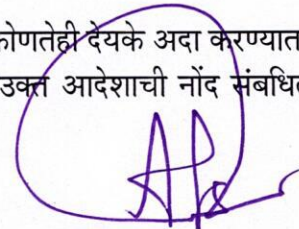 कोणतेही देयके अदा करण्यात
उक्त आदेशाची नोंद संबधित